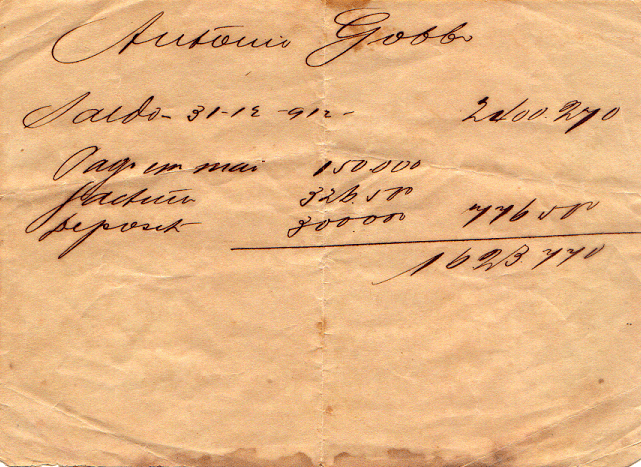 Antonio Gobbo
Saldo - 31-12-912- 2400.270
Pago em mai 150000
factura 326.500
deposit 300.000 776500
1623.770